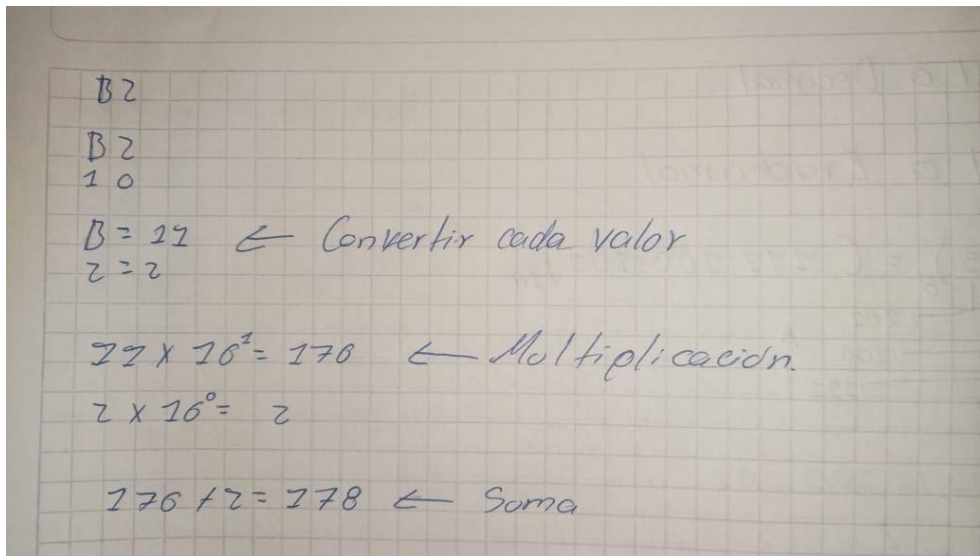 B2
B2
1 0
B = 11 ← Convertir cada valor
2 = 2
11 x 16¹ = 176 ← Multiplicación.
2 x 16⁰ = 2
176 + 2 = 178 ← Suma